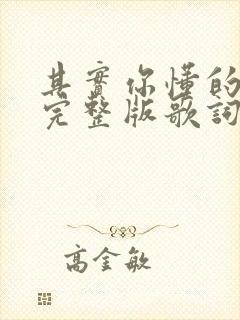 其實你懂的
完整版歌詞
高金敏